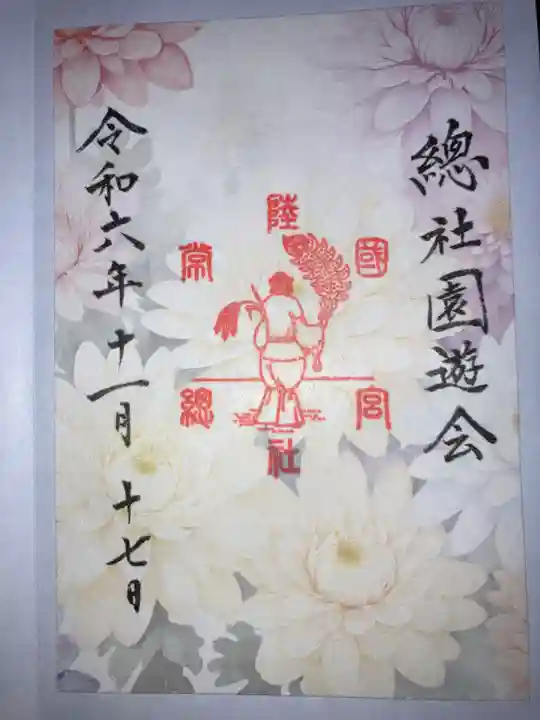 總社園遊会
常陸國
總社宮
令和六年十一月十七日